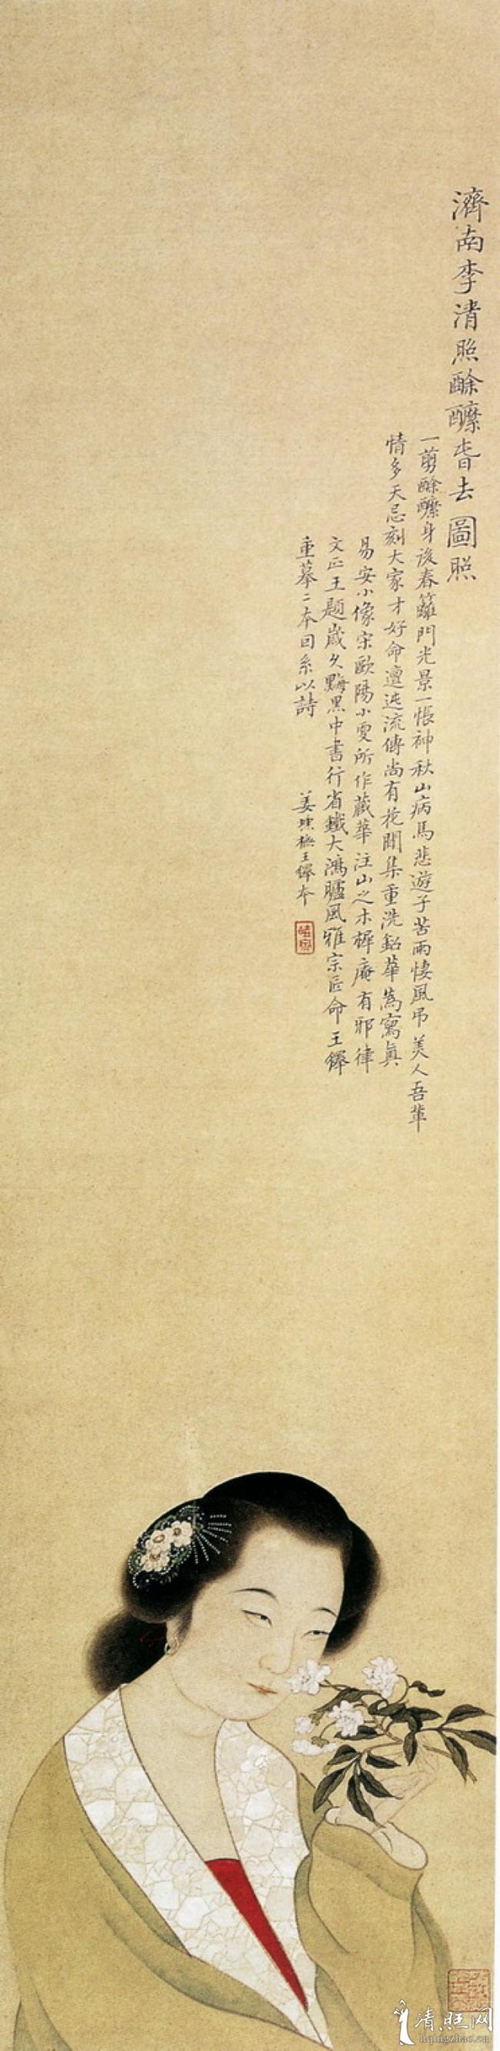 濟南李清照酴醿旾去圖照
一翦酴醿身後春籬門光景一悵神秋山病馬悲遊子苦雨悽風弔美人吾輩
情多天忌刻大家才好命邅迍流傳尚有花閒集重洗鉛華寫真
易安小像宋歐陽小雯所作藏華注山之木樨庵有邪律
文正王題歲久黝黑中書行省鐵大鴻臚風雅宗匠命王繹
重摹二本因系以詩
王繹
清旺网